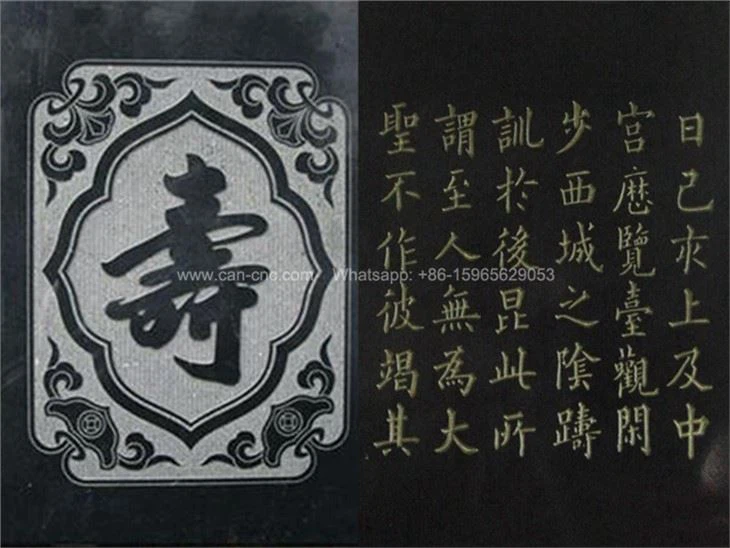 壽
日己亥上及中
宫歷覽臺觀閑
步西城之陰躊
訓於後昆此所
謂至人無為大
聖不作彼竭其
www.can-cnc.com Whatsapp: +86-15965629053